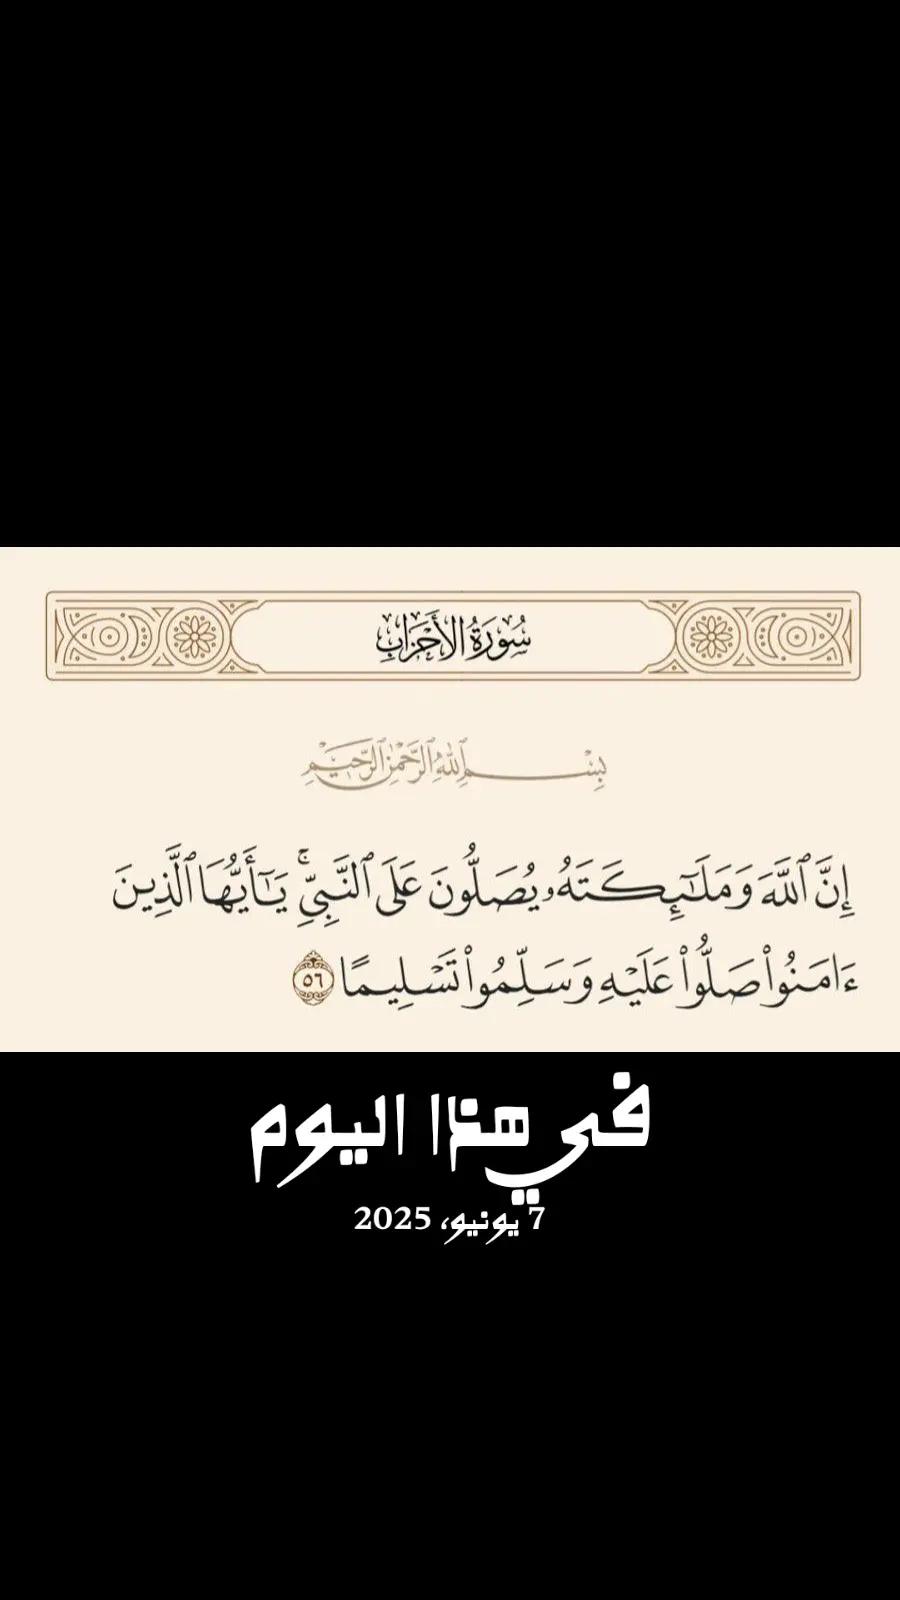 سُورَةُ الأَحْزَابِ
بِسْمِ ٱللَّهِ ٱلرَّحْمَٰنِ ٱلرَّحِيمِ
إِنَّ ٱللَّهَ وَمَلَـٰٓئِكَتَهُۥ يُصَلُّونَ عَلَى ٱلنَّبِيِّۚ يَـٰٓأَيُّهَا ٱلَّذِينَ
ءَامَنُوا۟ صَلُّوا۟ عَلَيْهِ وَسَلِّمُوا۟ تَسْلِيمًا ٥٦
في هذا اليوم
7 يونيو، 2025